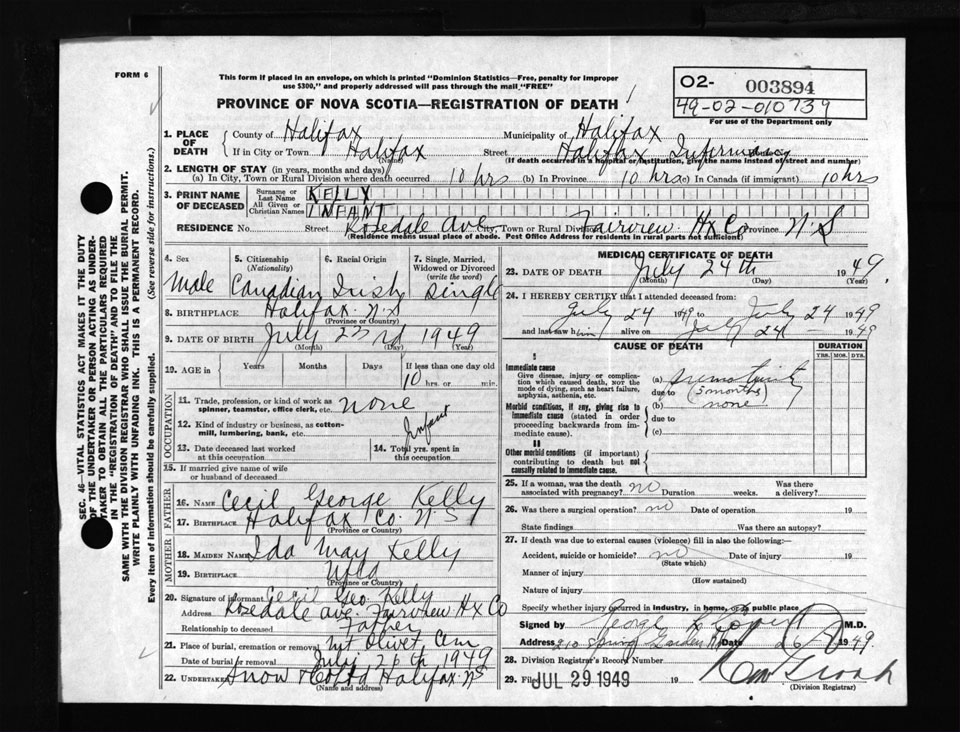 FORM 6
This form if placed in an envelope, on which is printed "Dominion Statistics—Free, penalty for improper
use $300," and properly addressed will pass through the mail "FREE"
PROVINCE OF NOVA SCOTIA—REGISTRATION OF DEATH
O2- 003894
49-02-010739
For use of the Department only
1. PLACE OF DEATH
County of Halifax Municipality of Halifax
If in City or Town Halifax Street Halifax Infirmary
(Name) (If death occurred in a hospital or institution, give the name instead of street and number)
2. LENGTH OF STAY (in years, months and days)
(a) In City, Town or Rural Division where death occurred 10 hrs (b) In Province 10 hrs (c) In Canada (if immigrant) 10 hrs
3. PRINT NAME OF DECEASED
Surname or Last Name KELLY
All Given or Christian Names INFANT
RESIDENCE No. Street Rosedale Ave. City, Town or Rural Division Fairview Hx Co Province N.S
(Residence means usual place of abode. Post Office Address for residents in rural parts not sufficient)
4. Sex
Male
5. Citizenship (Nationality)
Canadian
6. Racial Origin
Irish
7. Single, Married, Widowed or Divorced (write the word)
Single
8. BIRTHPLACE Halifax N.S
(Province or Country)
9. DATE OF BIRTH July 23rd 1949
(Month) (Day) (Year)
10. AGE in Years Months Days If less than one day old
10 hrs. or min.
OCCUPATION
11. Trade, profession, or kind of work as spinner, teamster, office clerk, etc. none
12. Kind of industry or business, as cotton-mill, lumbering, bank, etc. Infant
13. Date deceased last worked at this occupation
14. Total yrs. spent in this occupation
15. If married give name of wife or husband of deceased
FATHER
16. NAME Cecil George Kelly
17. BIRTHPLACE Halifax Co. N.S
(Province or Country)
MOTHER
18. MAIDEN NAME Ida May Kelly
19. BIRTHPLACE Nfld
(Province or Country)
20. Signature of informant Cecil Geo. Kelly
Address Rosedale ave. Fairview Hx Co
Relationship to deceased Father
21. Place of burial, cremation or removal Mt Olivet Cem
Date of burial or removal July 26th 1949
22. UNDERTAKER Snow & Co Ltd Halifax N.S
(Name and address)
MEDICAL CERTIFICATE OF DEATH
23. DATE OF DEATH July 24th 1949
(Month) (Day) (Year)
24. I HEREBY CERTIFY that I attended deceased from:
July 24 1949 to July 24 1949
and last saw him alive on July 24 - 1949
CAUSE OF DEATH
DURATION
YRS. MOS. DYS.
I
Immediate cause
Give disease, injury or complication which caused death, NOT the mode of dying, such as heart failure, asphyxia, asthenia, etc.
(a) Prematurity
due to (5 months)
Morbid conditions, if any, giving rise to immediate cause (stated in order proceeding backwards from immediate cause).
(b) none
due to
(c)
II
Other morbid conditions (if important) contributing to death but not causally related to immediate cause.
25. If a woman, was the death associated with pregnancy? no Duration weeks. Was there a delivery?
26. Was there a surgical operation? no Date of operation 19
State findings Was there an autopsy?
27. If death was due to external causes (violence) fill in also the following:—
Accident, suicide or homicide? no Date of injury 19
(State which)
Manner of injury
(How sustained)
Nature of injury
Specify whether injury occurred in industry, in home, or in public place
Signed by George M.D.
Address 210 Spring Garden Rd Date 26 1949
28. Division Registrar's Record Number
29. Filed JUL 29 1949 19
(Division Registrar)
SEC. 46—VITAL STATISTICS ACT MAKES IT THE DUTY
OF THE UNDERTAKER OR PERSON ACTING AS UNDER-
TAKER TO OBTAIN ALL THE PARTICULARS REQUIRED
IN THE "REGISTRATION OF DEATH" AND TO FILE THE
SAME WITH THE DIVISION REGISTRAR WHO SHALL ISSUE THE BURIAL PERMIT.
WRITE PLAINLY WITH UNFADING INK. THIS IS A PERMANENT RECORD.
Every item of information should be carefully supplied. (See reverse side for instructions.)